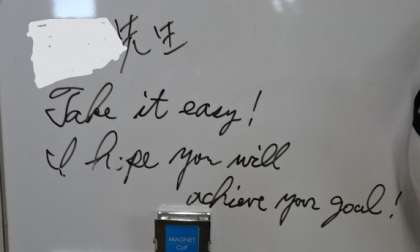 先生
Take it easy!
I hope you will
achieve your goal!
MAGNET